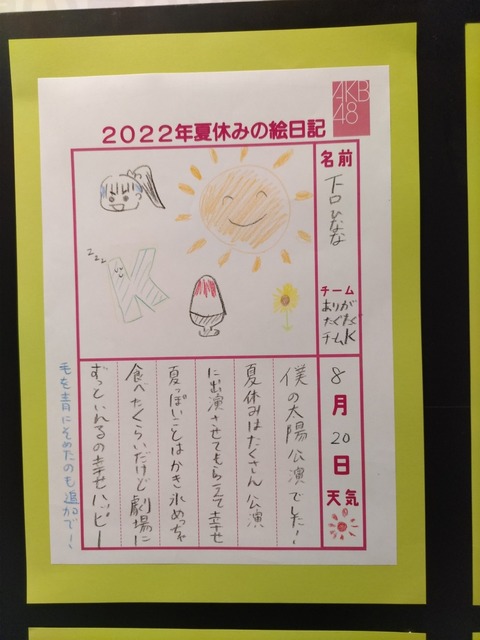 AKB
48
2022年夏休みの絵日記
名前
下口ひなな
チーム
ありが
たぐたく
チームK
zzz
K
8
月
20
日
天気
僕の太陽公演でした!
夏休みはたくさん公演
に出演させてもらえて幸せ
夏っぽいことはかき氷めっちゃ
食べたくらいだけど劇場に
ずっといれるの幸せハッピー
毛を青にそめたのも追加で!